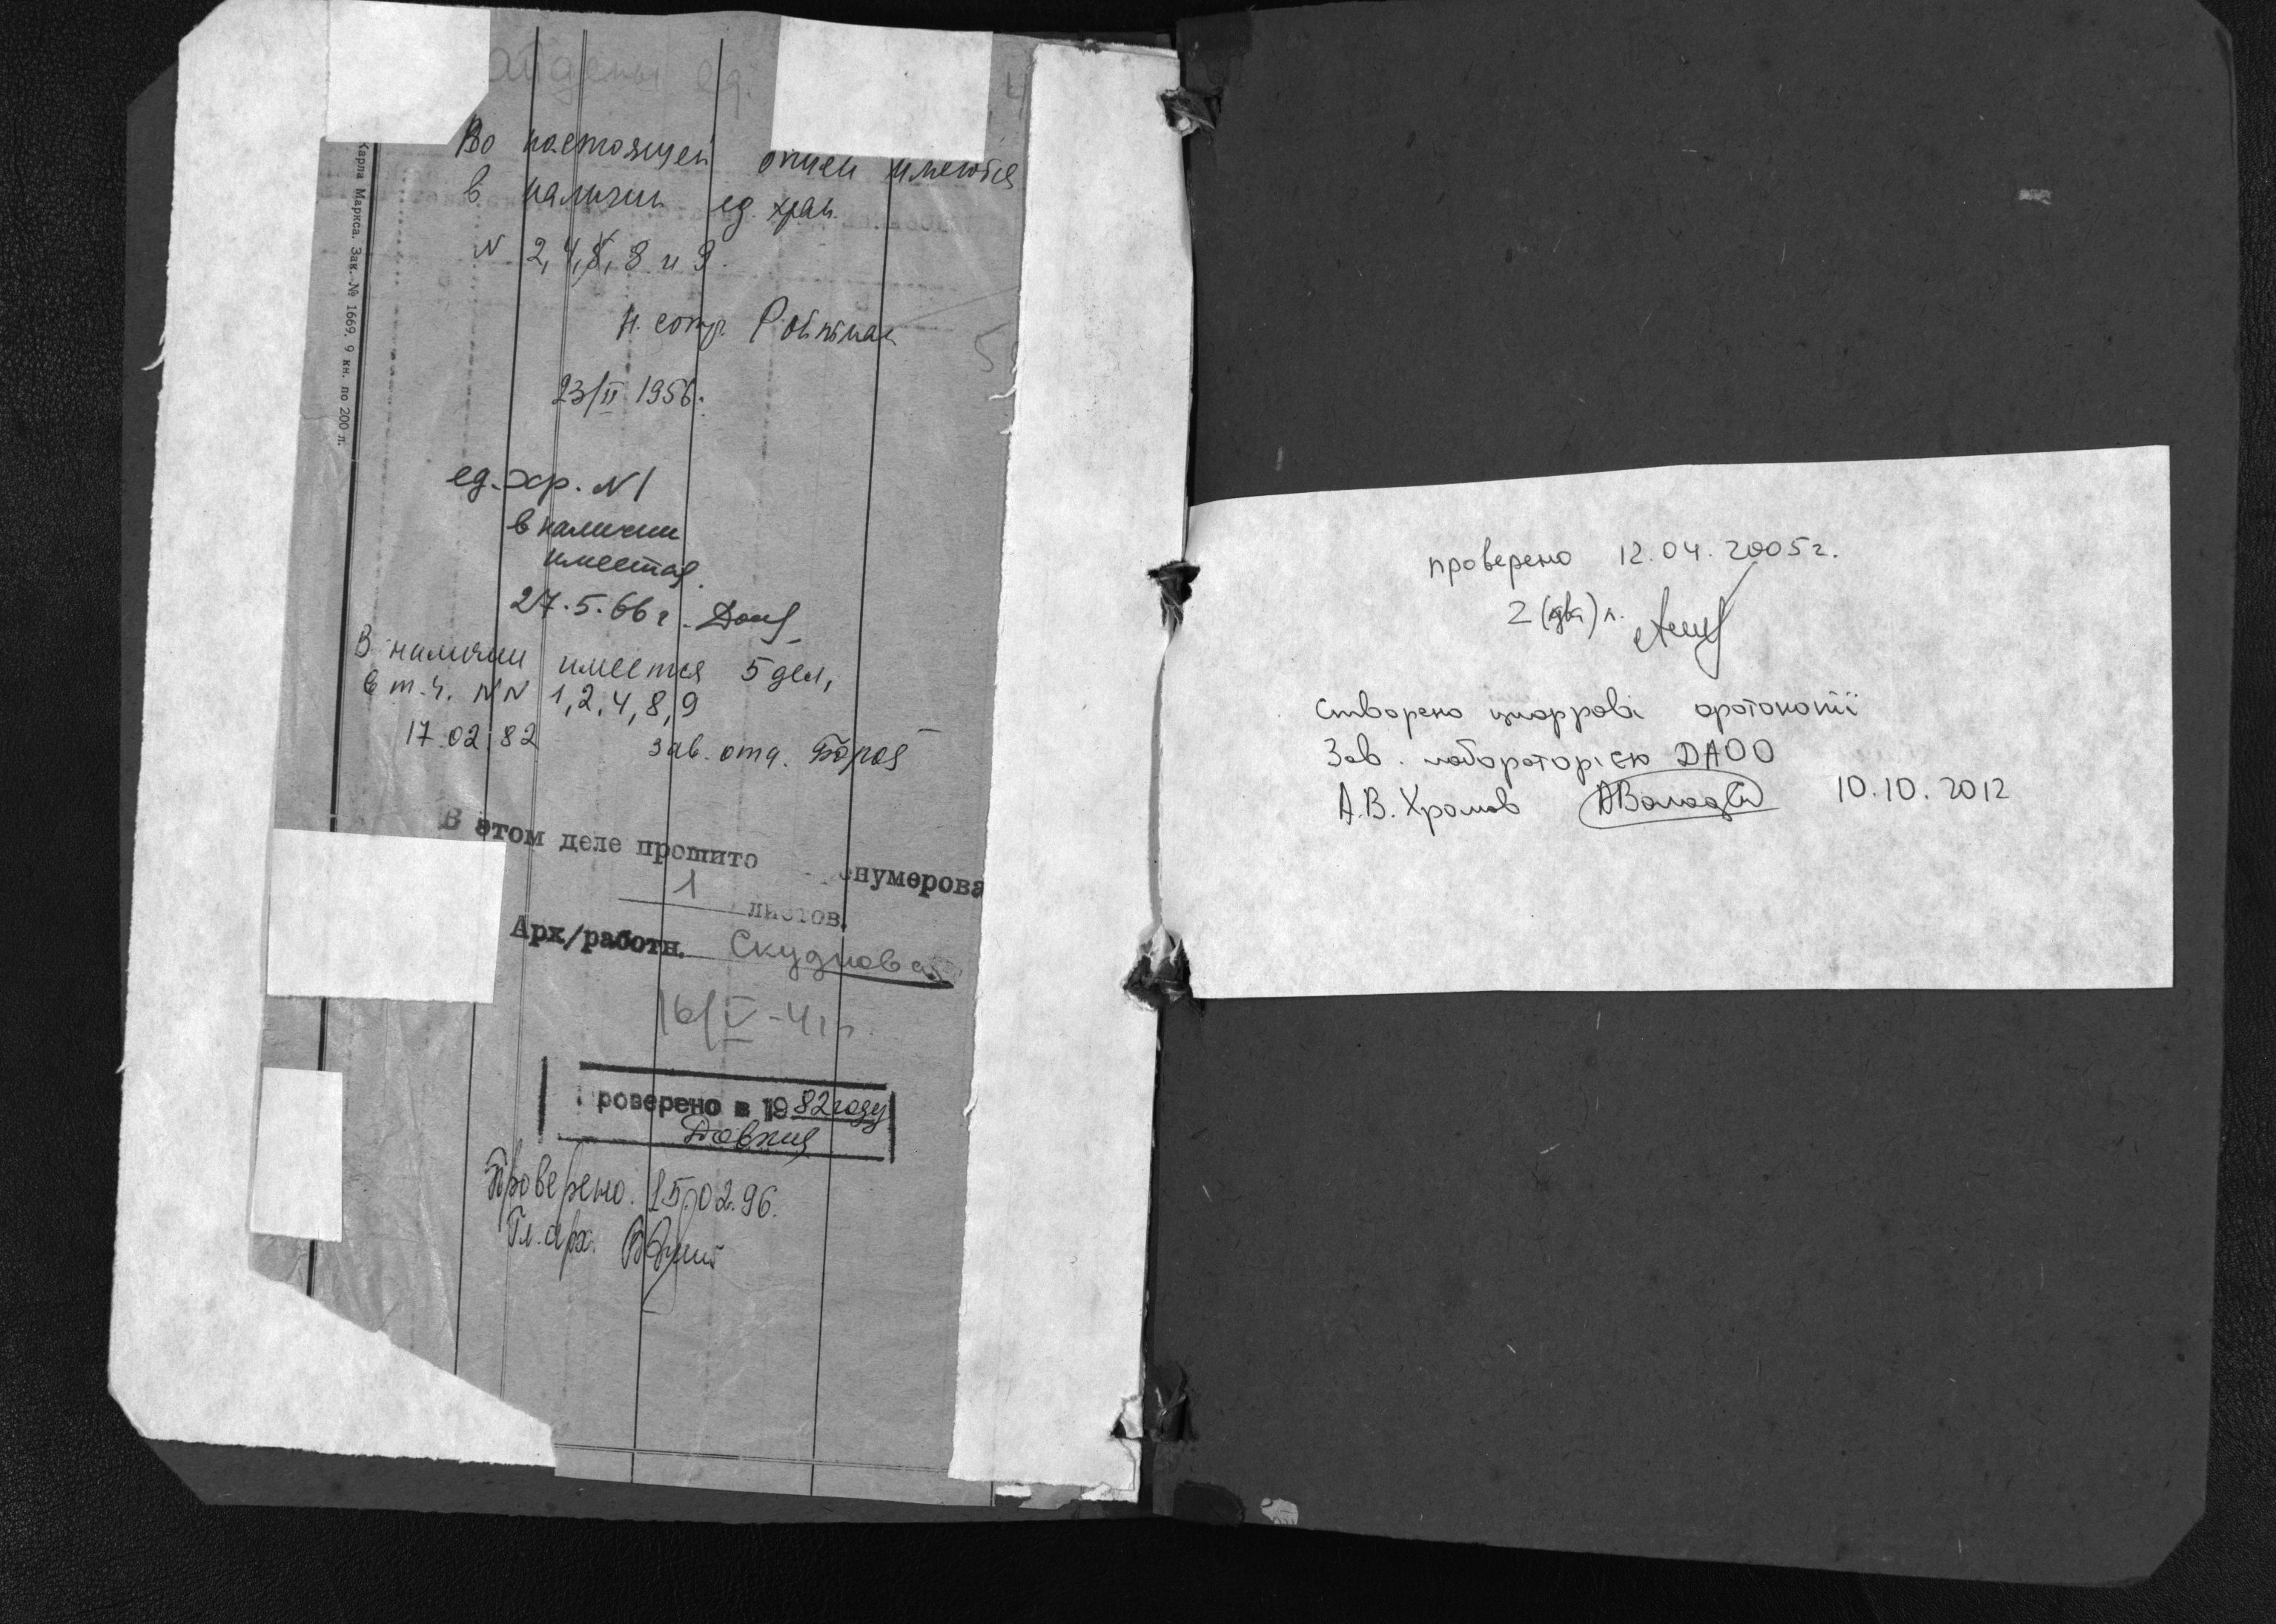 Карла Маркса. Зак. № 1669, 9 кн. по 200 л.
Во настоящей описи имеются
в наличии ед. хран.
N 2, 4, 5, 8 и 9.
н. сотр.
23/II 1956.
ед. хр. N 1
в наличии
имеется.
27.5.66 г.
В наличии имеется 5 дел,
в т.ч. NN 1, 2, 4, 8, 9
17.02.82 зав. отд.
В этом деле прошито
нумерова
1
листов.
Арх/работн. Скуднова
16/V-41 г.
роверено в 1982 году
Проверено. 15.02.96.
Гл. арх.
проверено 12.04.2005 г.
2 (два) л.
Створено цифрові фотокопії
Зав. лабораторією ДАОО
А.В. Хромов 10.10.2012